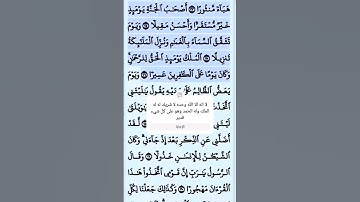 هَبَآءً مَّنثُورًا ۝ أَصْحَٰبُ ٱلْجَنَّةِ يَوْمَئِذٍ
خَيْرٌ مُّسْتَقَرًّا وَأَحْسَنُ مَقِيلًا ۝ وَيَوْمَ
تَشَقَّقُ ٱلسَّمَآءُ بِٱلْغَمَٰمِ وَنُزِّلَ ٱلْمَلَٰٓئِكَةُ
ٱلْمُلْكُ يَوْمَئِذٍ ٱلْحَقُّ لِلرَّحْمَٰنِ
وَكَانَ يَوْمًا عَلَى ٱلْكَٰفِرِينَ عَسِيرًا ۝ وَيَوْمَ
يَعَضُّ ٱلظَّالِمُ عَلَىٰ يَدَيْهِ يَقُولُ يَٰلَيْتَنِى
ٱتَّخَذْ
لا اله الا الله وحده لا شريك له له
الملك وله الحمد وهو على كل شيء
قدير
لَقَدْ
أَضَلَّنِى عَنِ ٱلذِّكْرِ بَعْدَ إِذْ جَآءَنِى وَكَانَ
ٱلشَّيْطَٰنُ لِلْإِنسَٰنِ خَذُولًا ۝ وَقَالَ
ٱلرَّسُولُ يَٰرَبِّ إِنَّ قَوْمِى ٱتَّخَذُوا۟ هَٰذَا
ٱلْقُرْءَانَ مَهْجُورًا ۝ وَكَذَٰلِكَ جَعَلْنَا لِكُلِّ